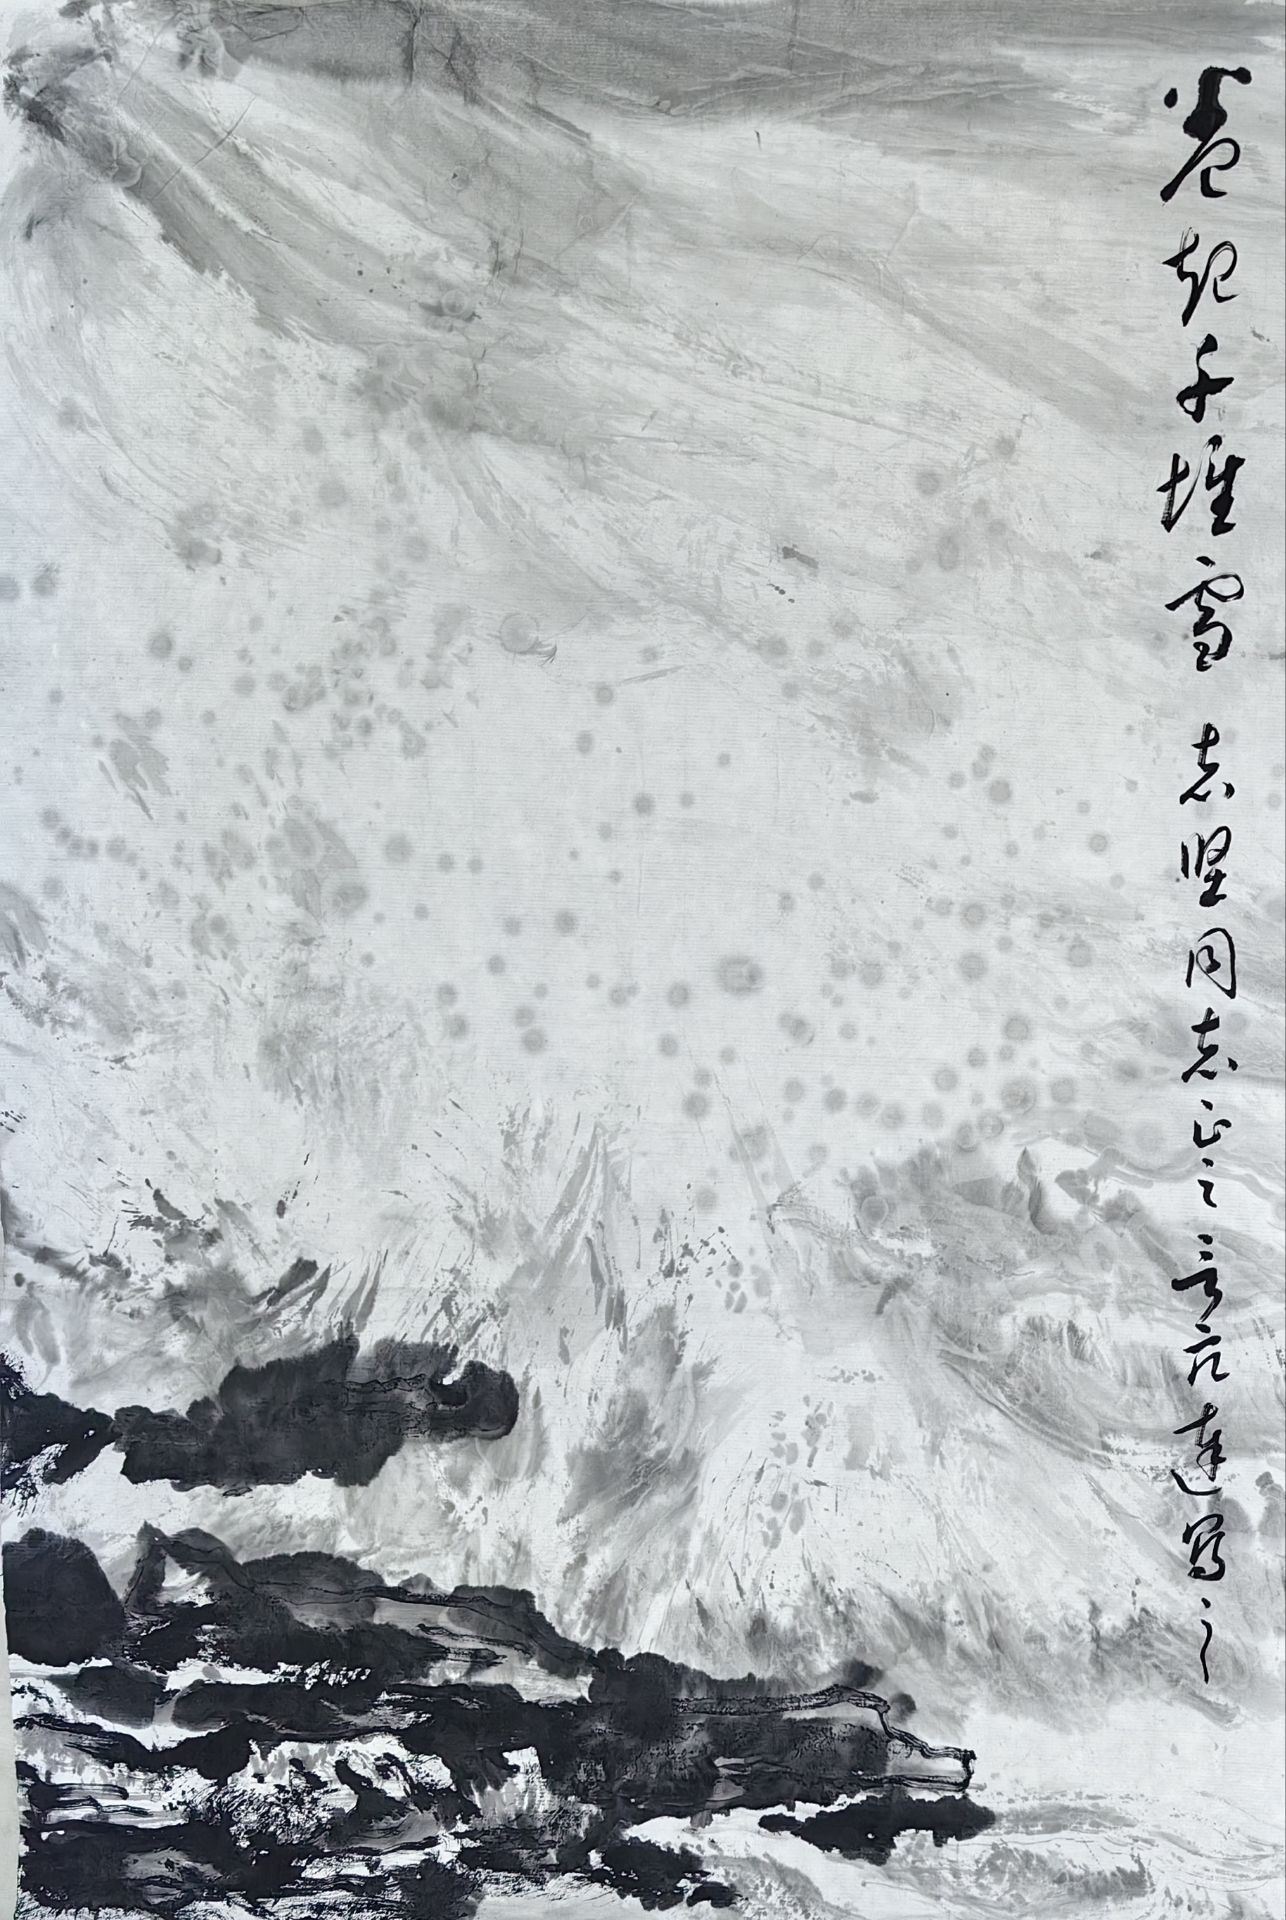 卷起千堆雪 志坚同志正之 亨六达写之